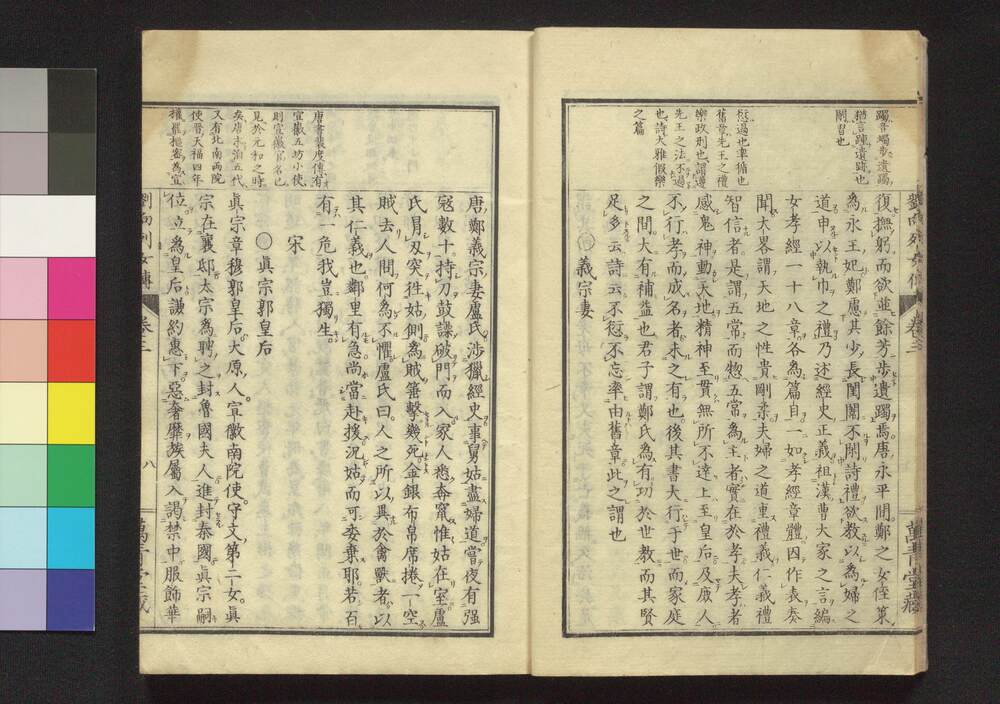 躅音蠋歩遺躅
猶言踵遺跡也
閑習也
愆過也率循也
舊章先王之禮
樂政刑也謂遵
先王之法不過
也詩大雅假樂
之篇
復撫躬而欲並餘芳歩遺躅焉唐永平間鄭之女侄策
為永王妃鄭慮其少長閨閫不閑詩禮欲教以為婦之
道申以執巾之禮乃述經史正義祖漢曹大家之言編
女孝經一十八章各為篇目一如孝經章體因作表奏
聞大畧謂天地之性貴剛柔夫婦之道重禮義仁義禮
智信者是謂五常而惣五常為主者實在於孝夫孝者
感鬼神動天地精神至貫無所不達上至皇后及庶人
不行孝而成名者未之有也後其書大行于世而家庭
之間大有補益也君子謂鄭氏為有功於世教而其賢
足多云詩云不愆不忘率由舊章此之謂也
○義宗妻
劉向列女傳
卷三
八
萬青堂藏
唐書裴度傳有
宣徽五坊小使
則宣徽官名已
見於元和之時
矣唐末洎五代
又有北南兩院
使晉天福四年
權罷樞密為宣
唐鄭義宗妻盧氏涉獵經史事舅姑盡婦道嘗夜有强
寇數十持刀鼓譟破門而入家人悉奔竄惟姑在室盧
氏冒刃突徃姑側為賊箠擊幾死金銀布帛席捲一空
賊去人問何為不懼盧氏曰人之所以異於禽獸者以
其仁義也鄰里有急尚當赴援況姑而可委棄耶若百
有一危我豈獨生
宋
○眞宗郭皇后
眞宗章穆郭皇后大原人宣徽南院使守文第二女眞
宗在襄邸太宗為聘之封魯國夫人進封泰國眞宗嗣
位立為皇后謙約惠下惡奢靡族屬入謁禁中服飾華